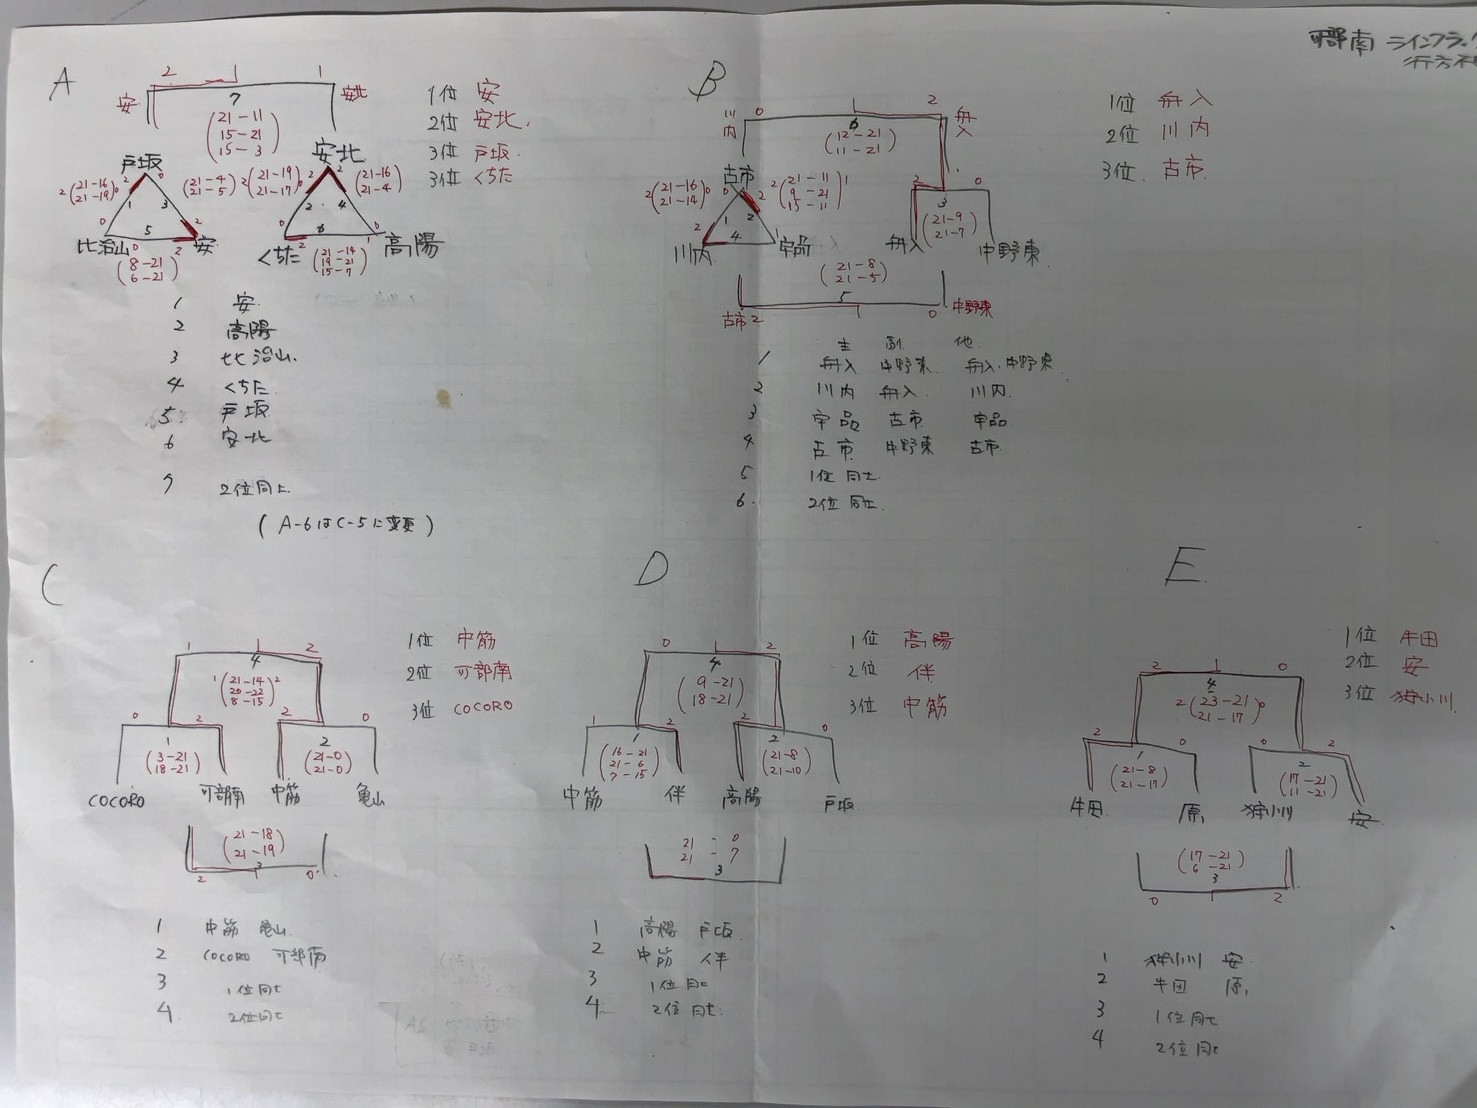 A
2 1 1
安 安北
7
21-11
15-21
15-3
1位 安
2位 安北
3位 戸坂
3位 くちた
戸坂
安北
2(21-16 21-19)0
(21-4 21-5)
2(21-19 21-17)0
(21-16 21-4)
1 3
2 4
5
6
比治山 安
くちた 高陽
(8-21 6-21)
(21-14 19-21 15-7)
1 安
2 高陽
3 比治山
4 くちた
5 戸坂
6 安北
7 2位同士
(A-6はC-5に変更)
可部南 ラインフラッ
行方不
B
川内 0 1 2 舟入
6
(12-21 11-21)
1位 舟入
2位 川内
3位 古市
古市
2(21-16 21-14)0
2(21-11 9-21 15-11)1
1 2
4
川内 宇品
2 0
3
(21-9 21-7)
舟入 中野東
(21-8 21-5)
5
古市 2 1 0 中野東
主 副 他
1 舟入 中野東 舟入.中野東
2 川内 舟入 川内
3 宇品 古市 宇品
4 古市 中野東 古市
5 1位同士
6 2位同士
C
1 1 2
4
1(21-14 20-22 8-15)2
1位 中筋
2位 可部南
3位 COCORO
0 2 2 0
1 2
(3-21 18-21)
(21-0 21-0)
COCORO 可部南 中筋 亀山
(21-18 21-19)
3
2 1 0
1 中筋 亀山
2 COCORO 可部南
3 1位同士
4 2位同士
D
0 1 2
4
(9-21 18-21)
1位 高陽
2位 伴
3位 中筋
1 2 2 0
1 2
(16-21 21-6 7-15)
(21-8 21-10)
中筋 伴 高陽 戸坂
21-0
21-7
3
1 高陽 戸坂
2 中筋 伴
3 1位同士
4 2位同士
E
2 1 0
4
2(23-21 21-17)0
1位 牛田
2位 安
3位 狩小川
2 0 0 2
1 2
(21-8 21-17)
(17-21 11-21)
牛田 原 狩小川 安
(17-21 6-21)
3
0 1 2
1 狩小川 安
2 牛田 原
3 1位同士
4 2位同士